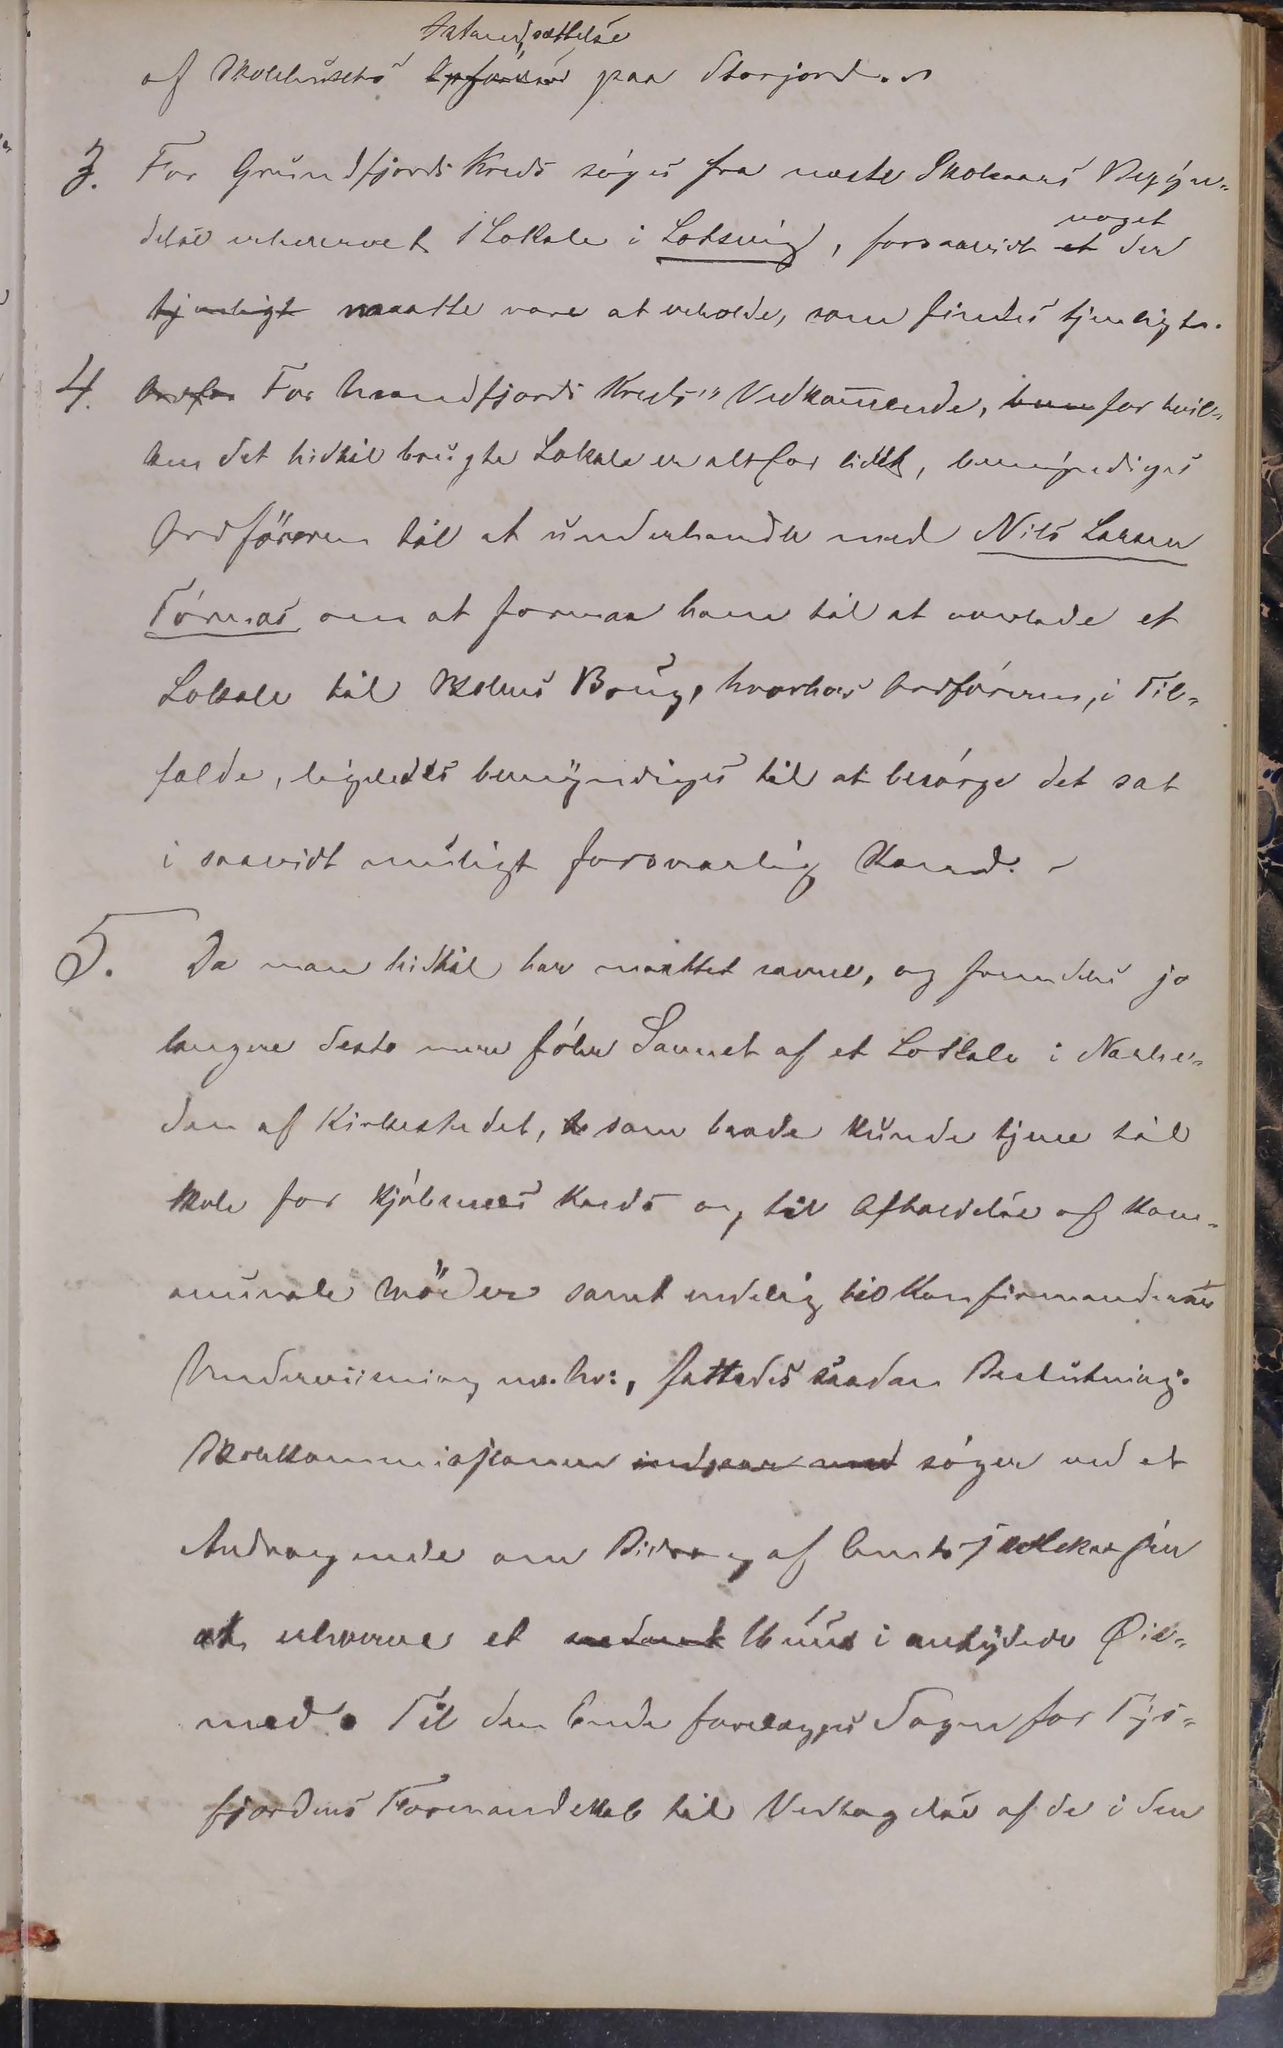 Istandsættelse
af Skolehusets Opförsel paa Storjord.
3. For Grundfjords Kreds söges fra næste Skoleaars Begyn-
delse erhvervet Lokale i Lotsvig, forsaavidt et noget der
tjenligt maatte være at erholde, som findes tjenligt.
4. Ordfö For Haandfjords Kreds' Vedkommende, hvor for hvil-
ken det hidtil brugte Lokale er altfor lidet, bemyndiges
Ordföreren til at underhandle med Nils Larsen
Törnæs om at formaa ham til at overlade et
Lokale til Skolens Brug, hvorhos Ordföreren, i Til-
fælde, ligeledes bemyndiges til at besörge det sat
i saavidt muligt forsvarlig Stand. -
5. Da man hidtil har maattet savne, og fremdeles jo
længere desto mere föler Savnet af et Lokale i Nærhe-
den af Kirkestedet, som baade kunde tjene til
Skole for Kjöbsnes Kreds og til Afholdelse af Kom-
munale Möder samt endelig til Konfirmandernes
Underviisning m. v:, fattedes saadan Beslutning:
Skolekommissionen indgaar med söger ved et
Andragende om Bidrag af Amtsskolekassen
at erhverve et saadant Huus i antydede Öie-
med. Til den Ende forelægges Sagen for Tys-
fjordens Formandskab til Vedtagelse af de i den